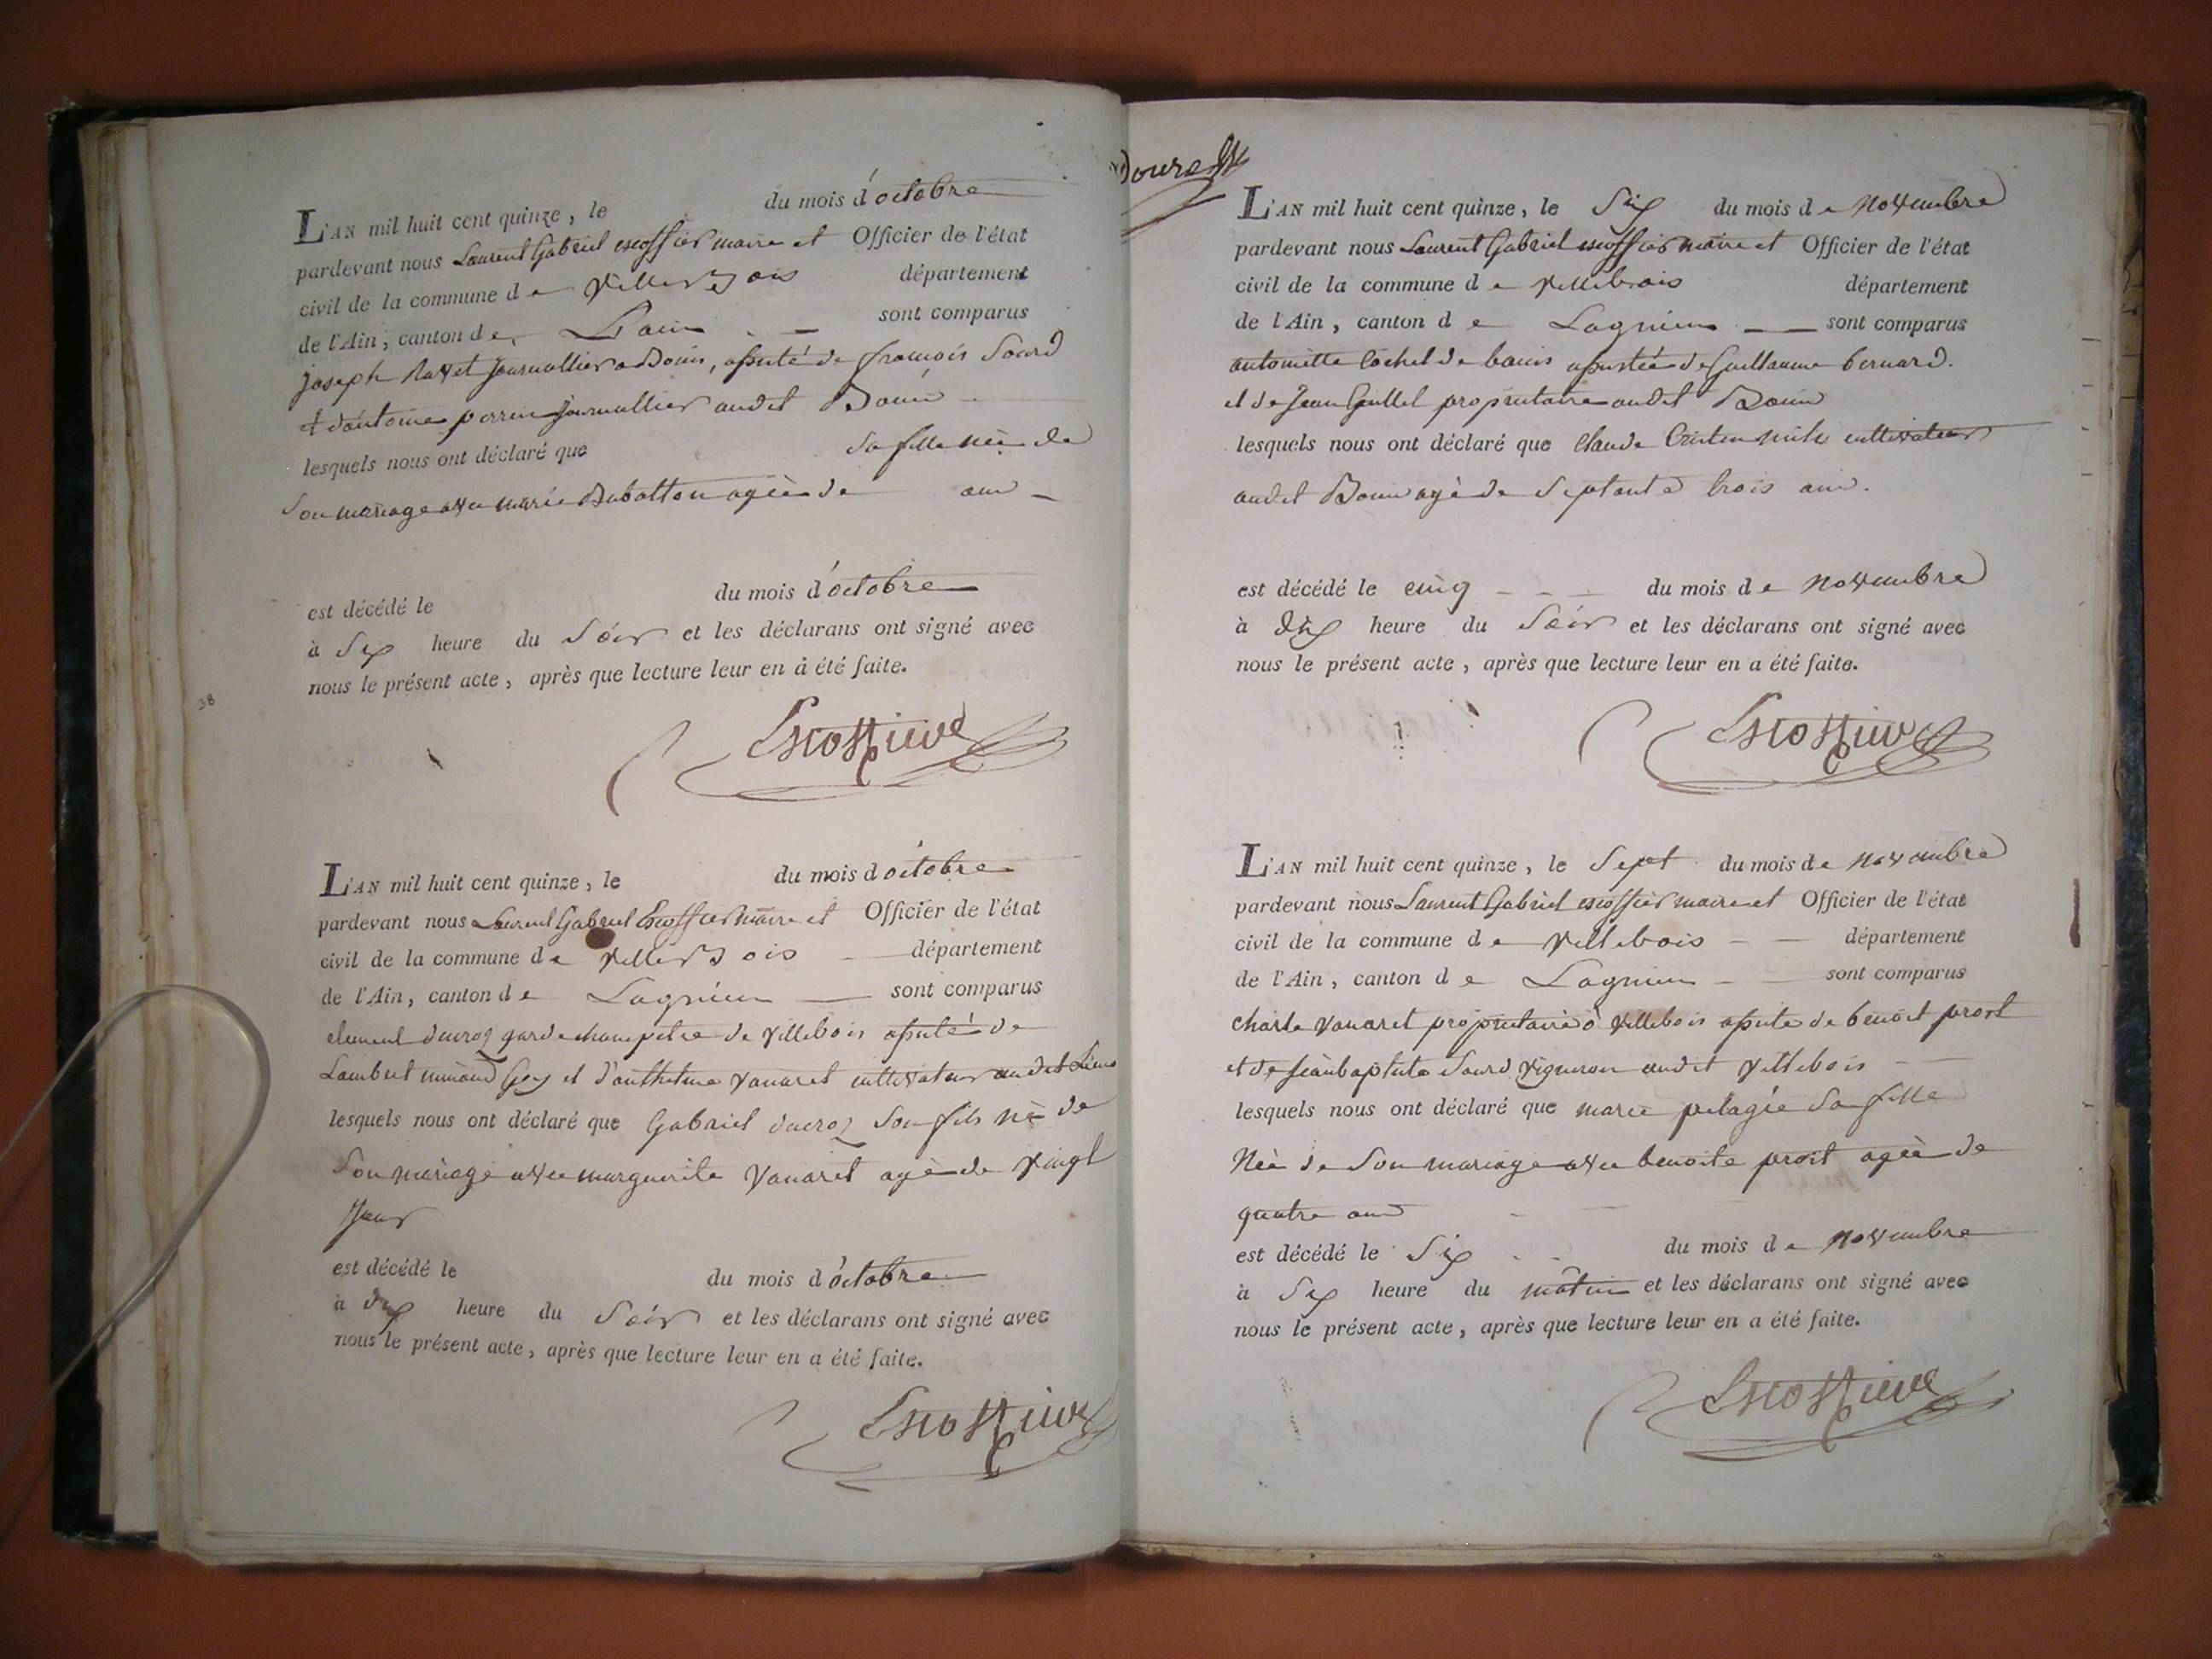 L'AN mil huit cent quinze, le du mois d'octobre
pardevant nous Laurent Gabriel escoffier maire et Officier de l'état
civil de la commune de Villebois département
de l'Ain, canton de sont comparus
joseph Ravet journallier a Bouis, assisté de françois Sourd
et d'antoine perrin journallier audit Bouis
lesquels nous ont déclaré que sa fille née de
Son mariage avec marie agée de ans
est décédé le du mois d'octobre
à Six heure du Soir et les déclarans ont signé avec
nous le présent acte, après que lecture leur en à été faite.
Escoffier
38
L'AN mil huit cent quinze, le du mois d'octobre
pardevant nous Laurent Gabriel Escoffier maire et Officier de l'état
civil de la commune de Villebois département
de l'Ain, canton de Lagnieu sont comparus
clement ducroz garde champetre de villebois assisté de
Lambert et d'anthelme vanaret cultivateur audit Lieu
lesquels nous ont déclaré que Gabriel ducroz Son fils né de
Son mariage avec marguerite Vanaret agé de vingt
jour
est décédé le du mois d'octobre
à dix heure du Soir et les déclarans ont signé avec
nous le présent acte, après que lecture leur en a été faite.
Escoffier
L'AN mil huit cent quinze, le Six du mois de novembre
pardevant nous Laurent Gabriel escoffier maire et Officier de l'état
civil de la commune de villebois département
de l'Ain, canton de Lagnieu sont comparus
antoinette de bouis assistée de Guillaume bernard.
et de Jean Guillet propriétaire audit Bouis
lesquels nous ont déclaré que claude cultivateur
audit Bouis agé de Septante trois ans.
est décédé le cinq du mois de novembre
à dix heure du Soir et les déclarans ont signé avec
nous le présent acte, après que lecture leur en a été faite.
Escoffier
L'AN mil huit cent quinze, le Sept du mois de novembre
pardevant nous Laurent Gabriel escoffier maire et Officier de l'état
civil de la commune de villebois département
de l'Ain, canton de Lagnieu sont comparus
charle vanaret propriétaire à villebois assisté de benoit prost
et de jean baptiste Sourd vigneron audit villebois
lesquels nous ont déclaré que marie pelagie Sa fille
Née de Son mariage avec benoite prost agée de
quatre ans
est décédé le Six du mois de novembre
à Six heure du matin et les déclarans ont signé avec
nous le présent acte, après que lecture leur en a été faite.
Escoffier